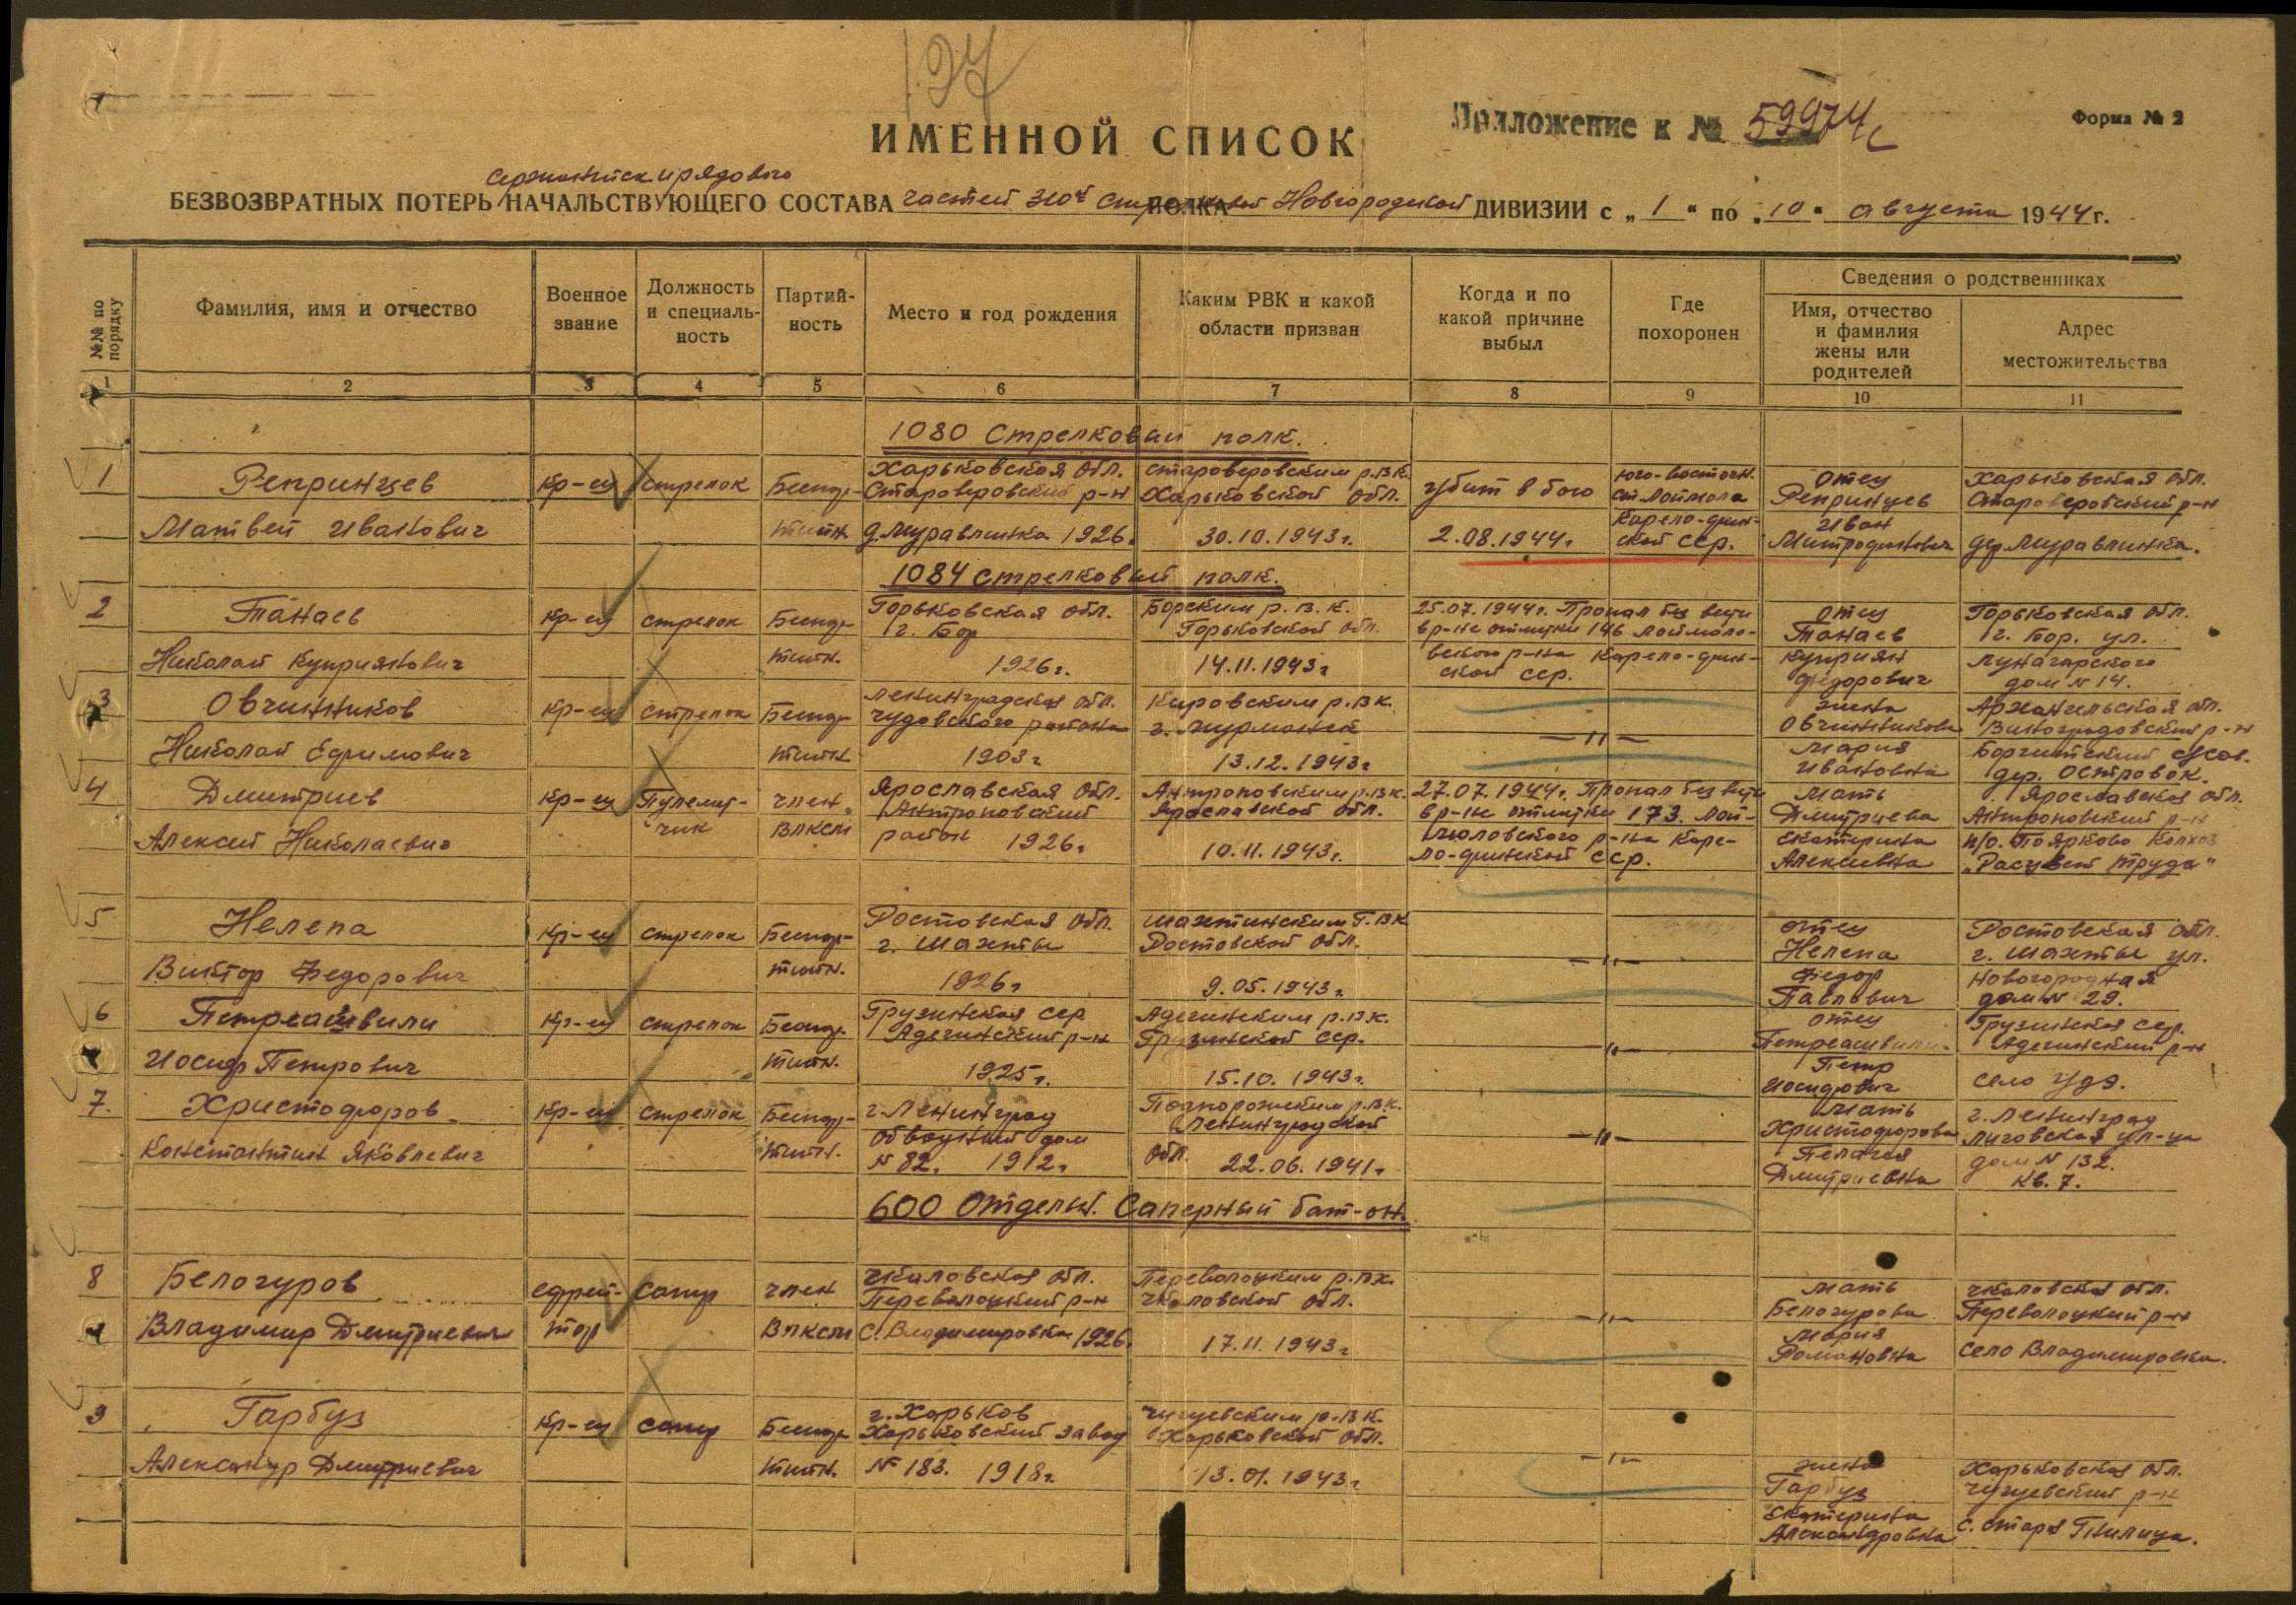 197
ИМЕННОЙ СПИСОК
Приложение к № 59974с
Форма № 2
сержантск и рядового
БЕЗВОЗВРАТНЫХ ПОТЕРЬ НАЧАЛЬСТВУЮЩЕГО СОСТАВА частей 310й стрелковой Новгородской ДИВИЗИИ с „ 1 “ по „ 10 “ августа 1944 г.
№№ по порядку
Фамилия, имя и отчество
Военное звание
Должность и специаль-ность
Партий-ность
Место и год рождения
Каким РВК и какой области призван
Когда и по какой причине выбыл
Где похоронен
Сведения о родственниках
Имя, отчество и фамилия жены или родителей
Адрес местожительства
1 2 3 4 5 6 7 8 9 10 11
1080 Стрелковый полк.
1 Репринцев кр-ец стрелок Беспар- Харьковская обл. Староверовский р-н Староверовским р.в.к. Харьковской обл. убит в бою юго-восточн. ст Лоймола отец Репринцев Харьковская обл. Староверовский р-н
Матвей Иванович тийн. д. Муравлинка 1926. 30.10.1943г. 2.08.1944г. Карело-фин-ской сср. Иван Митрофанович дер. Муравлинка.
1084 стрелковый полк.
2 Танаев кр-ец стрелок Беспар- Горьковская обл. г. Бор Борским р.в.к. Горьковской обл. 25.07.1944г. Пропал без вести в р-не отметки 146 Лоймоло- отец Танаев Горьковская обл. г. Бор. ул.
Николай Куприянович тийн. 1926г. 14.11.1943г вского р-на Карело-фин-ской сср. Куприян Федорович Луначарского дом № 14.
3 Овчинников кр-ец стрелок Беспар- Ленинградская обл. Чудовского района Кировским р.в.к. г. Мурманск —"— жена Овчинникова Архангельская обл. Виноградовский р-н
Николай Ефимович тийн 1903г 13.12.1943г Мария Ивановна дер. Островок.
4 Дмитриев кр-ец Пулемет-чик член ВЛКСМ Ярославская обл. Антроповский Антроповским р.в.к. Ярославской обл. 27.07.1944г. Пропал без вести в р-не отметки 173. Лой- мать Дмитриева Ярославская обл. Антроповский р-н
Алексей Николаевич район 1926г 10.11.1943г. моловского р-на Каре-ло-финской сср. Екатерина Алексеевна п/о. Поярково Колхоз „Расцвет труда“
5 Нелепа кр-ец стрелок Беспар- Ростовская обл. г. Шахты Шахтинским Г.в.к Ростовской обл. —"— отец Нелепа Ростовская обл. г. Шахты ул.
Виктор Федорович тийн. 1926г 9.05.1943г. Федор Павлович дом № 29.
6 Петреашвили кр-ец стрелок Беспар- Грузинская сср р-н р.в.к. Грузинской сср. —"— отец Петреашвили Грузинская сср. р-н
Иосиф Петрович тийн. 1925г. 15.10.1943г. Петр Иосифович село Удэ.
7. Христофоров кр-ец стрелок Беспар- г. Ленинград Обводный дом р.в.к. Ленинградской —"— мать Христофорова г. Ленинград Лиговская ул-ца
Константин Яковлевич тийн. № 82. 1912г. обл. 22.06.1941г Пелагея Дмитриевна дом № 132. кв. 7.
600 Отдельн. Саперный бат-он.
8 Белогуров ефрей- сапер член Чкаловская обл. Переволоцкий р-н Переволоцким р.в.к. Чкаловской обл. —"— мать Белогурова Чкаловская обл. Переволоцкий р-н
Владимир Дмитриевич тор ВЛКСМ с. Владимировка 1926. 17.11.1943г Мария Романовна село Владимировка.
9 Гарбуз кр-ец сапер Беспар г. Харьков Харьковский завод Чугуевским р.в.к. Харьковской обл. —"—
Александр Дмитриевич тийн. № 183. 1918г 13.01.1943г. жена Гарбуз Харьковская обл. Чугуевский р-н
Екатерина Александровна с. Стара Гнилица.